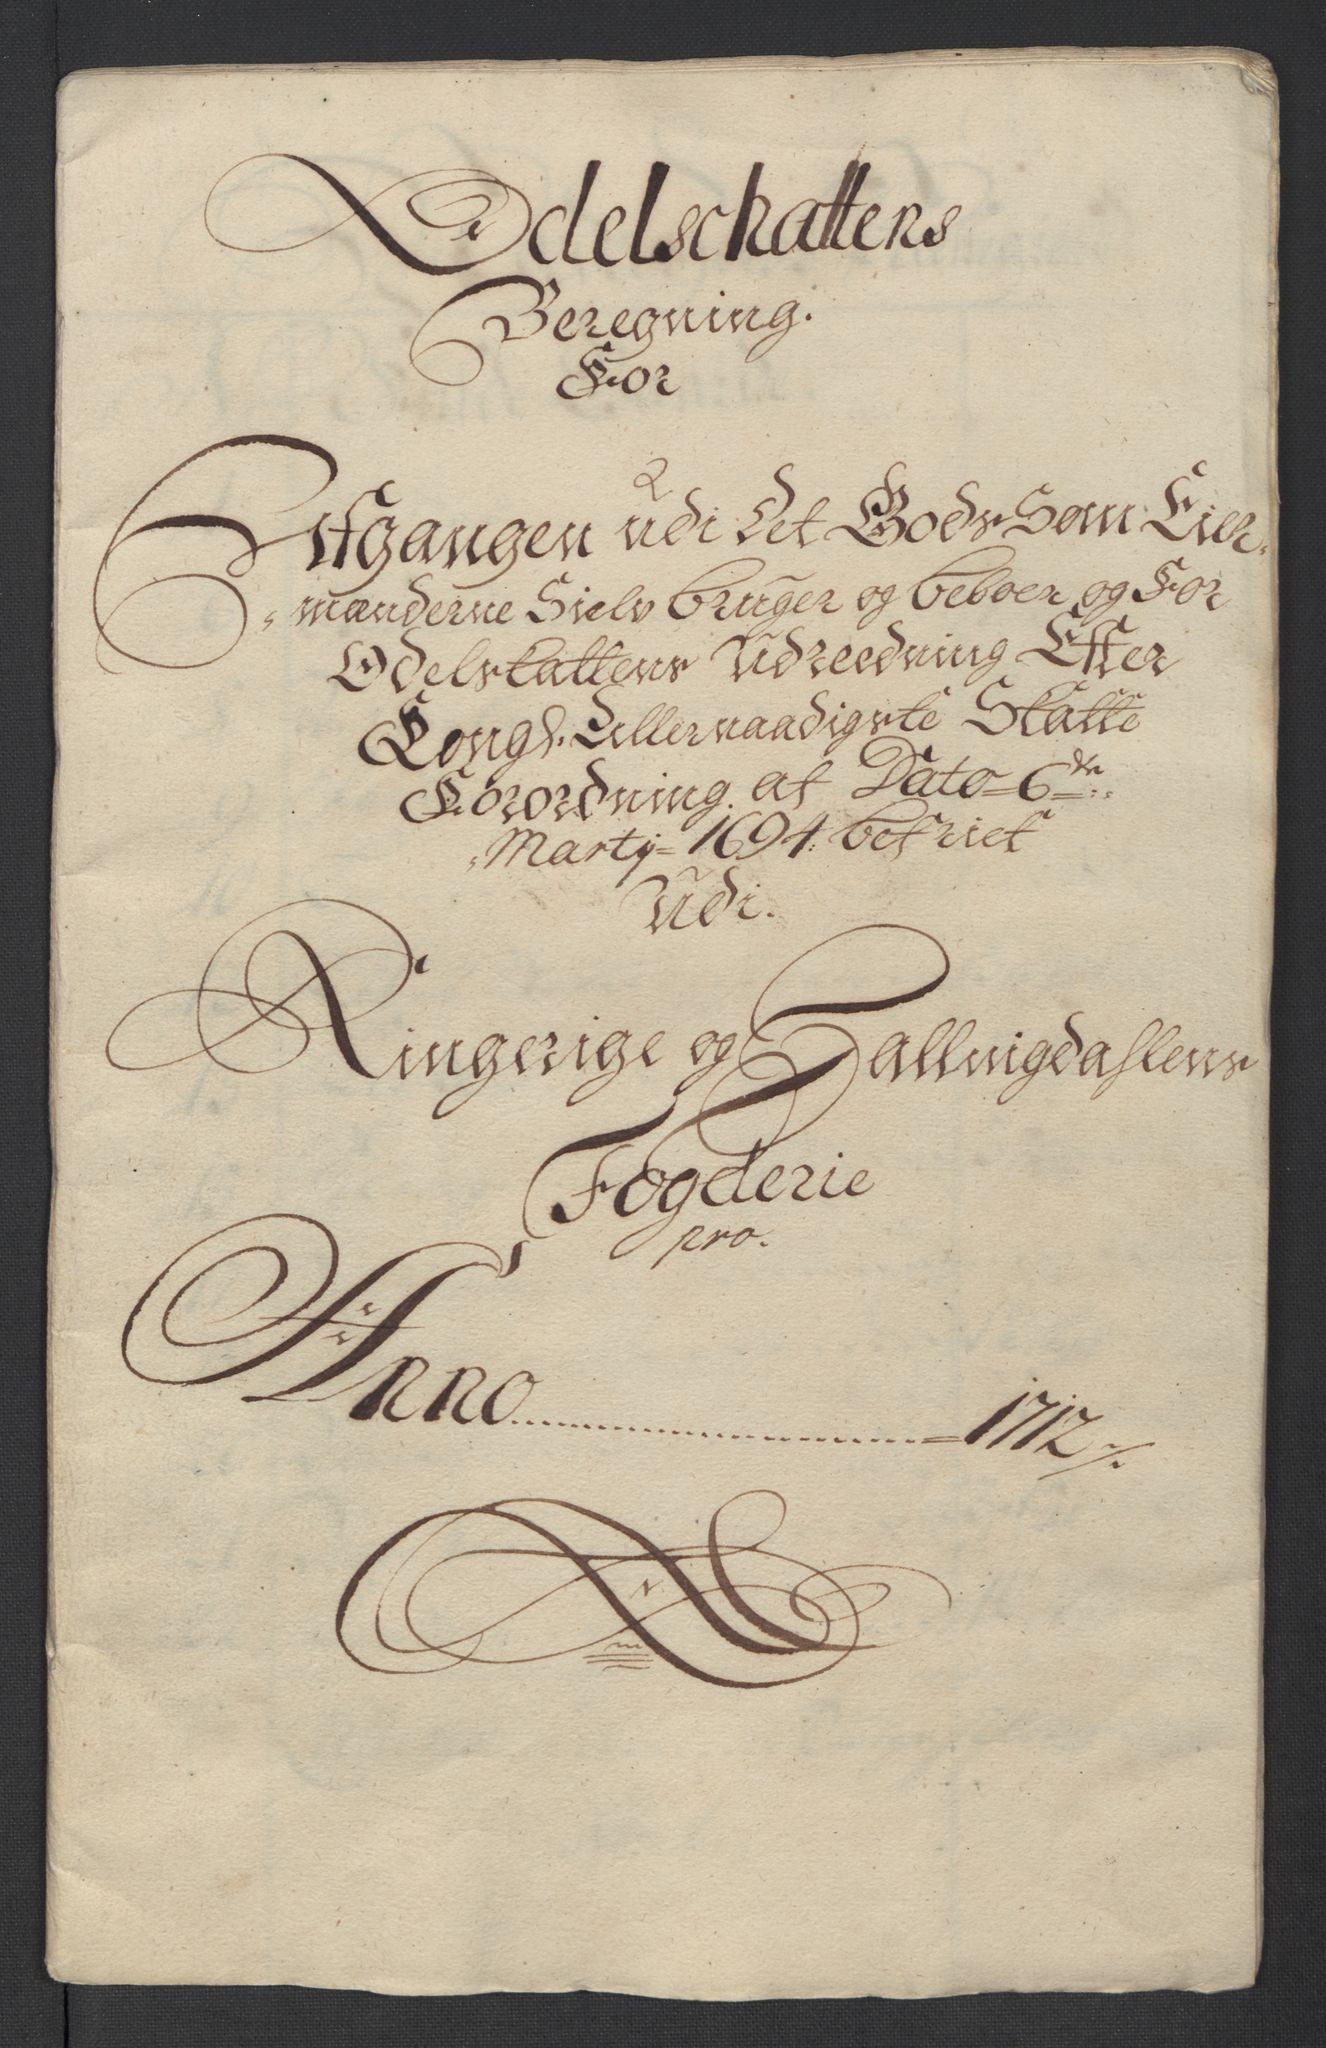 Odelschattens
Beregning.
For
Afgangen udi det Gods Som Eier-
mænderne Sielv bruger og beboer og For
Odelskattens Udreedning Effter
Kongl. Allernaadigste Skatte
Forordning af Dato 6te
Martij 1694 befriet
Udi.
Ringerige og Hallingdahlens
Fogderie
pro.
Anno 1712